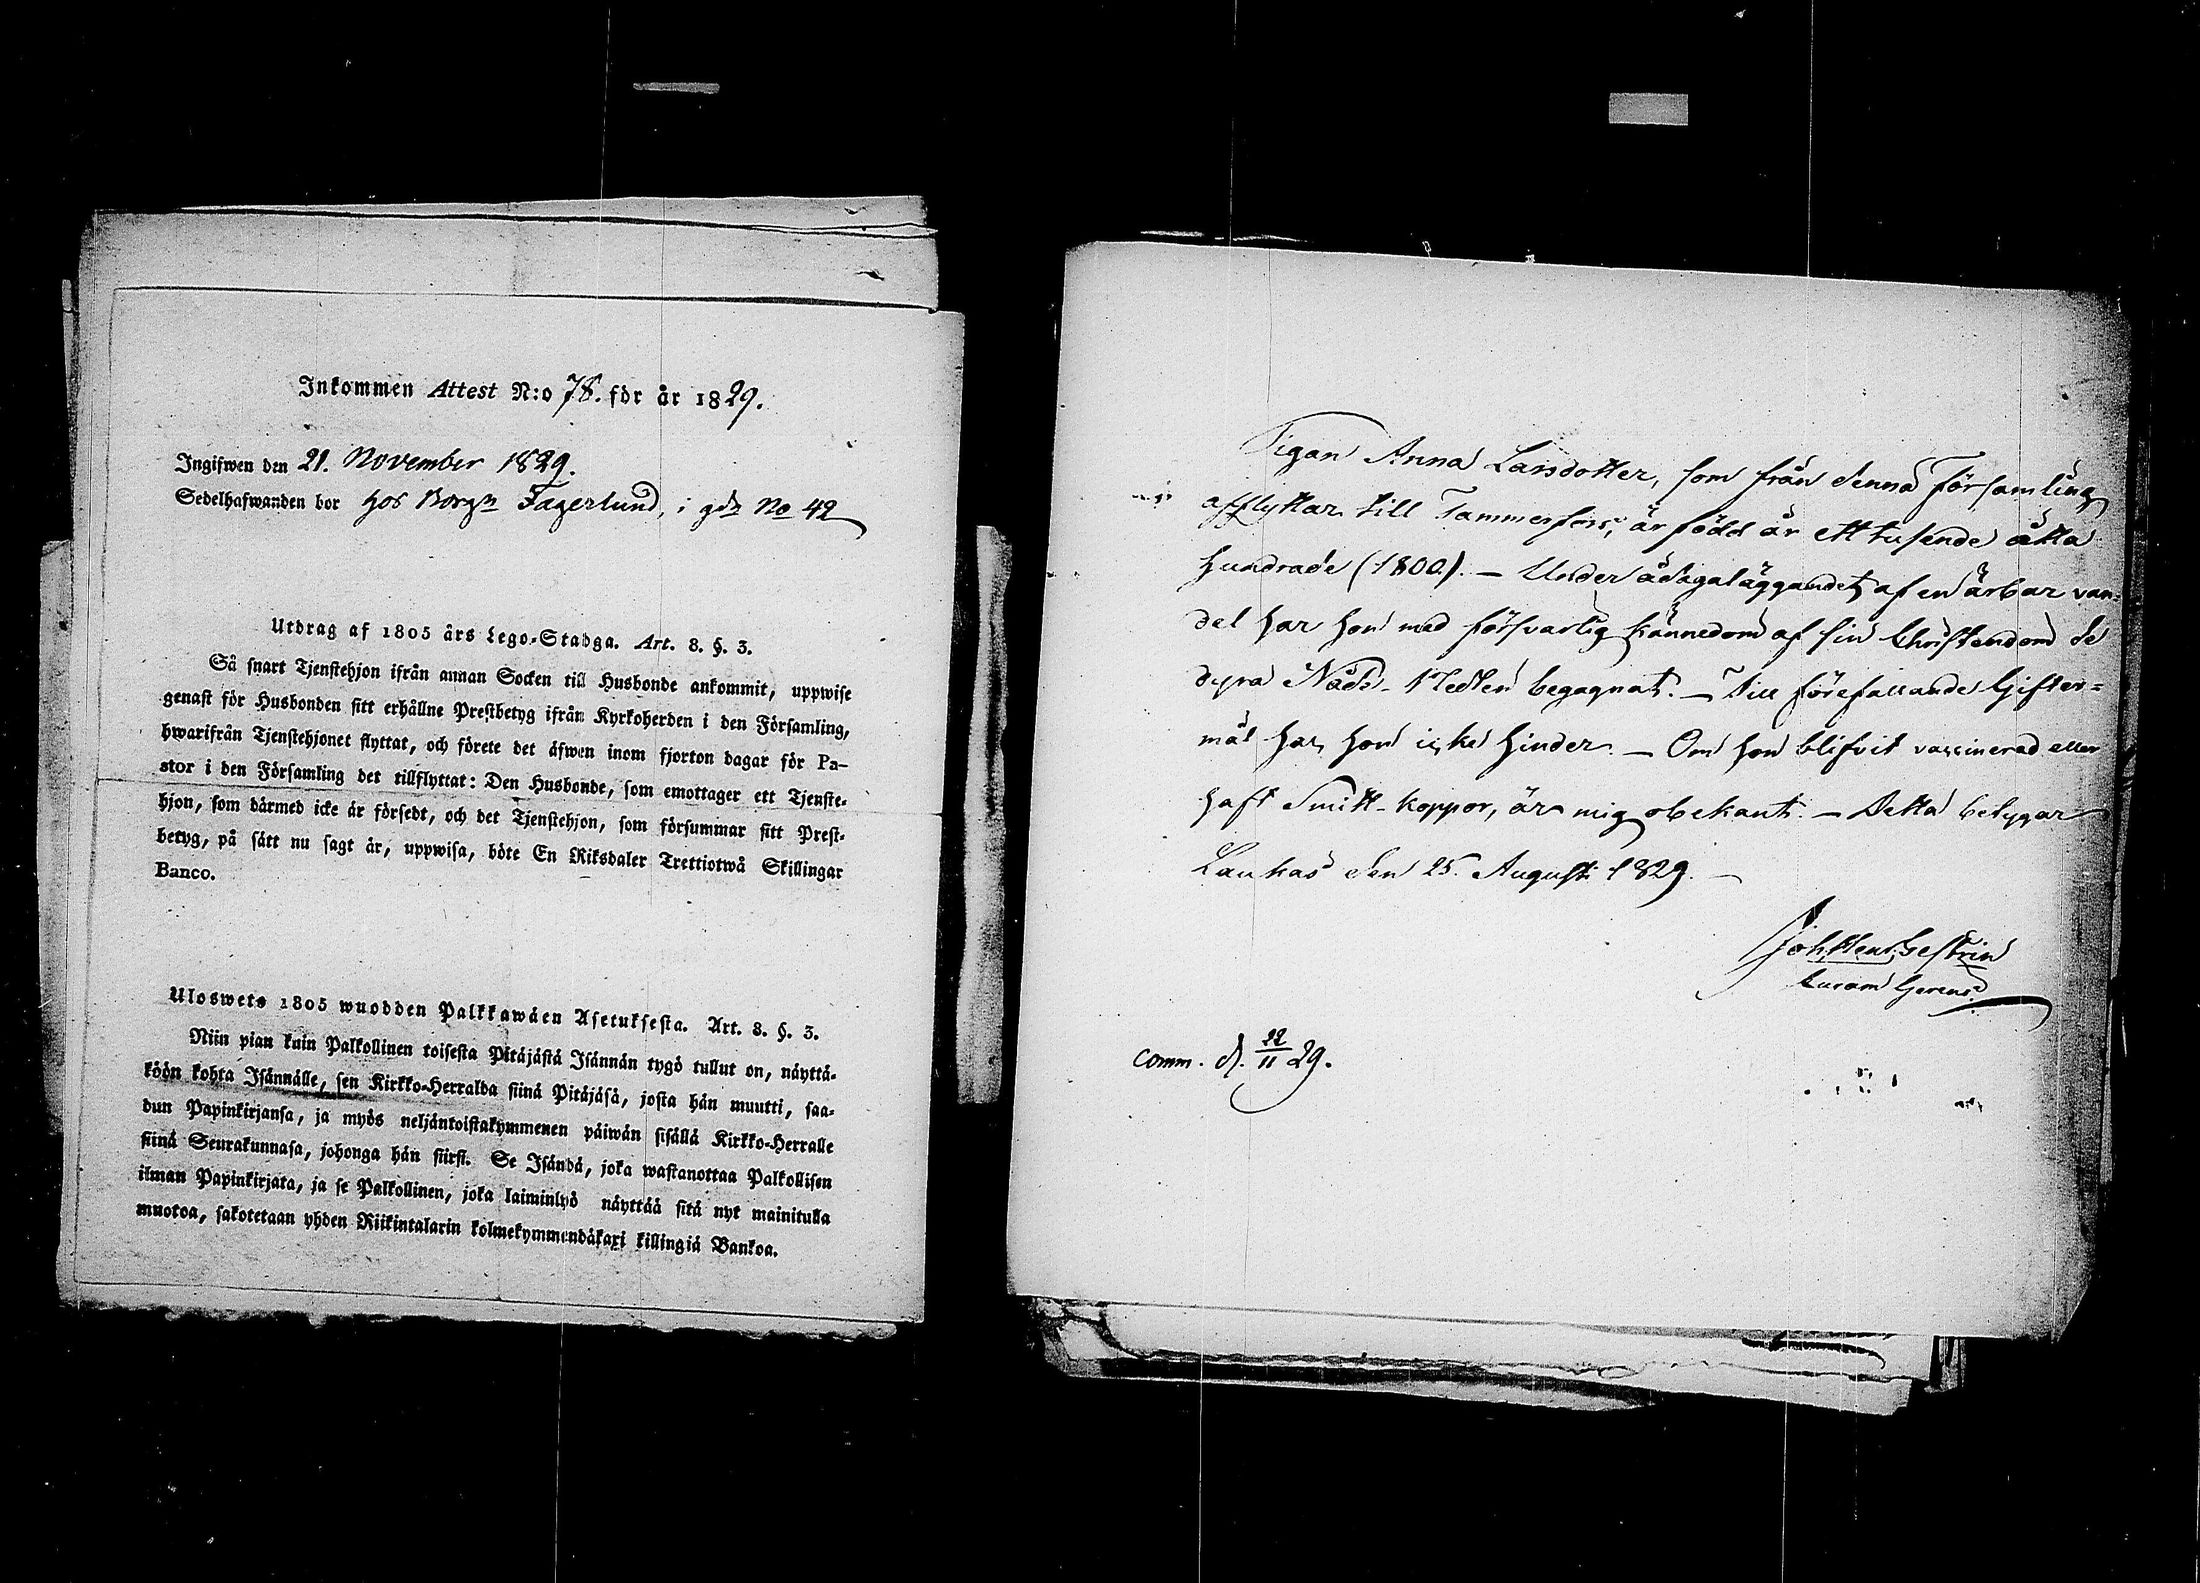 Inkommen Attest N:o 78. för år 1829.
Ingifwen den 21. November 1829.
Sedelhafwanden bor hos Borgn Fagerlund, i gdn No 42
Utdrag af 1805 års Lego-Stadga. Art. 8. §. 3.
Så snart Tjenstehjon ifrån annan Socken till Husbonde ankommit, uppwise
genast för Husbonden sitt erhållne Prestbetyg ifrån Kyrkoherden i den Församling,
hwarifrån Tjenstehjonet flyttat, och förete det äfwen inom fjorton dagar för Pa-
stor i den Församling det tillflyttat: Den Husbonde, som emottager ett Tjenste-
hjon, som därmed icke är försedt, och det Tjenstehjon, som försummar sitt Prest-
betyg, på sätt nu sagt är, uppwisa, böte En Riksdaler Trettiotwå Skillingar
Banco.
Uloswets 1805 wuodden Palkkawäen Asetuksesta. Art. 8. §. 3.
Niin pian kuin Palkollinen toisesta Pitäjästä Isännän tygö tullut on, näyttä-
köön kohta Isännälle, sen Kirkko-Herralda siinä Pitäjäsä, josta hän muutti, saa-
dun Papinkirjansa, ja myös neljäntoistakymmenen päiwän sisällä Kirkko-Herralle
siinä Seurakunnasa, johonga hän siirsi. Se Isändä, joka wastanottaa Palkollisen
ilman Papinkirjata, ja se Palkollinen, joka laiminlyö näyttää sitä nyt mainitulla
muotoa, sakotetaan yhden Riikintalarin kolmekymmendäkaxi killingiä Bankoa.
Pigan Anna Larsdotter, som från denna Församling
afflyttar till Tammerfors, är född år ett tusende åtta
hundrade (1800). — Under ådagaläggandet af en ärbar van-
del har hon med försvarlig kännedom af sin Christendom de
dyra Nåds-Medlen begagnat. — Till förefallande Gifter-
mål har hon icke hinder. — Om hon blifvit vaccinerad eller
haft Smitt-koppor, är mig obekant. — Detta betygar
Laukas den 25. Augusti 1829. —
Joh. Henr. Gestrin
Curam Gerens.
comm. d. 22/11 29.